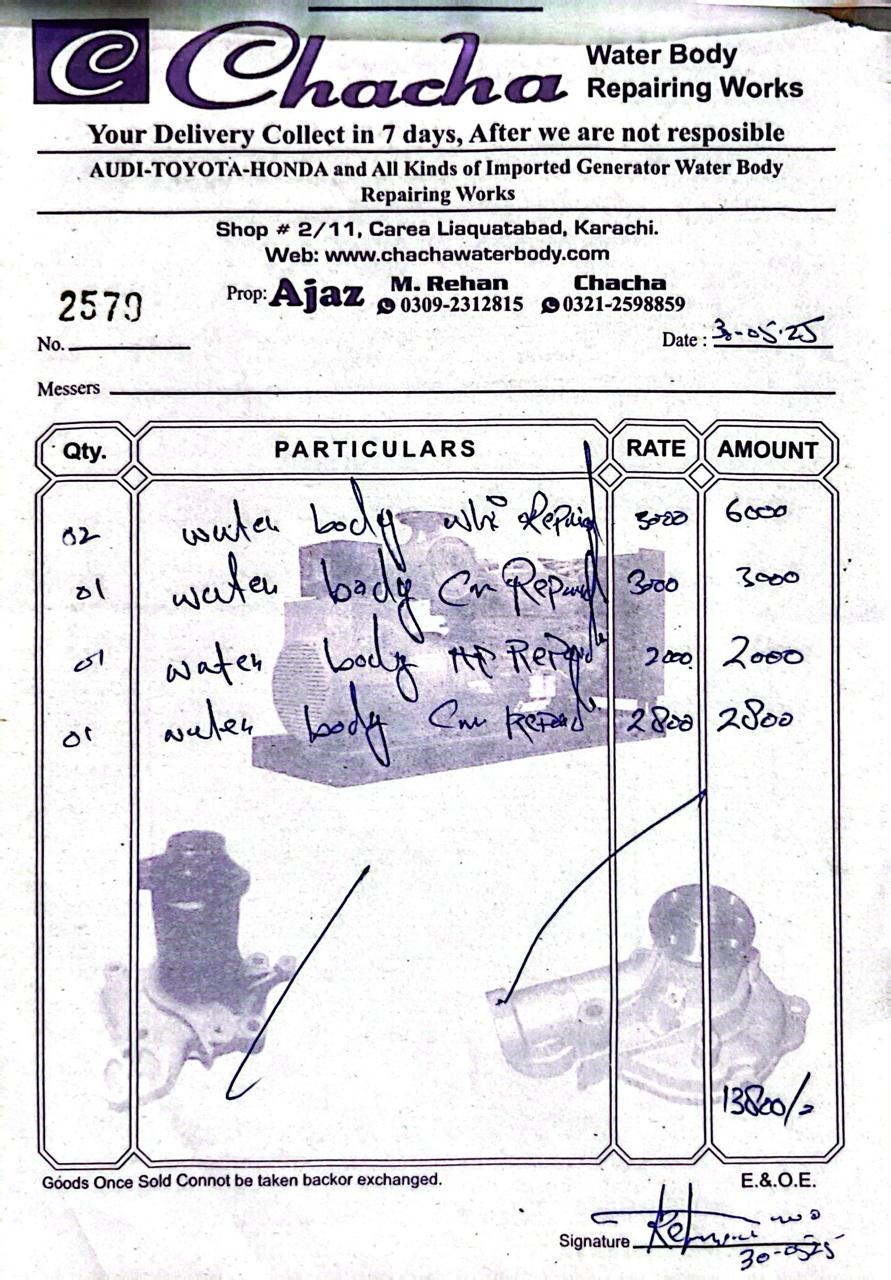 C Chacha Water Body
Repairing Works
Your Delivery Collect in 7 days, After we are not resposible
AUDI-TOYOTA-HONDA and All Kinds of Imported Generator Water Body
Repairing Works
Shop # 2/11, Carea Liaquatabad, Karachi.
Web: www.chachawaterbody.com
Prop: Ajaz M. Rehan 0309-2312815 Chacha 0321-2598859
2579
No.
Date : 30-05-25
Messers
Qty. PARTICULARS RATE AMOUNT
02 water body Repair 3000 6000
01 water body Repair 3000 3000
01 water body Repair 2000 2000
01 water body Repair 2800 2800
13800/=
Goods Once Sold Connot be taken backor exchanged. E.&.O.E.
Signature
30-05-25